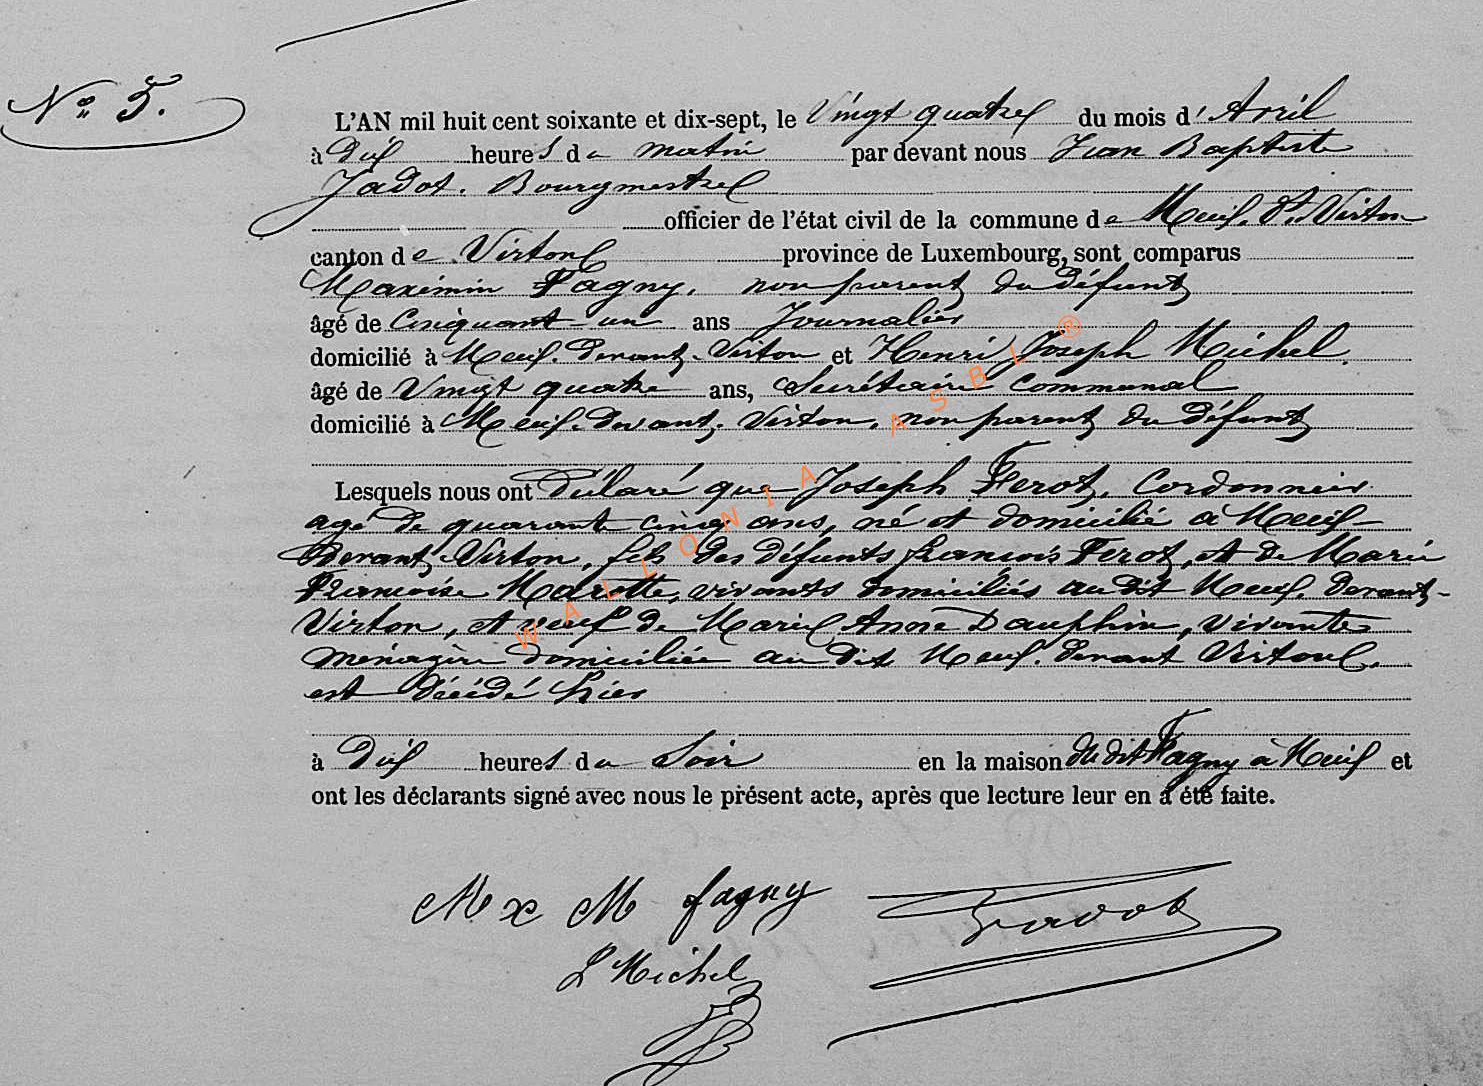 N° 5.
L'AN mil huit cent soixante et dix-sept, le Vingt quatre du mois d' Avril
à Dix heures du matin par devant nous Jean Baptiste
Jadot. Bourgmestre
officier de l'état civil de la commune de Meix. Dt Virton
canton de Virton province de Luxembourg, sont comparus
Maximin Fagny, non parent du défunt
âgé de Cinquante-un ans Journalier
domicilié à Meix. devant. Virton et Henri Joseph Michel.
âgé de Vingt quatre ans, Secrétaire Communal
domicilié à Meix. devant. Virton. non parent du défunt
Lesquels nous ont Déclaré que Joseph Ferot, Cordonnier
agé de quarante cinq ans, né et domicilié à Meix-
Devant. Virton, fils des défunts françois Ferot, et de Marie
Françoise Marotte, vivants domiciliés au dit Meix. devant-
Virton, et veuf de Marie Anne Dauphin, vivante
ménagère domiciliée au dit Meix. devant Virton,
est décédé hier
à Dix heures du Soir en la maison du dit Fagny à Meix et
ont les déclarants signé avec nous le présent acte, après que lecture leur en a été faite.
M x M fagny Jadot
Michel
WALLONIA ASBL ®